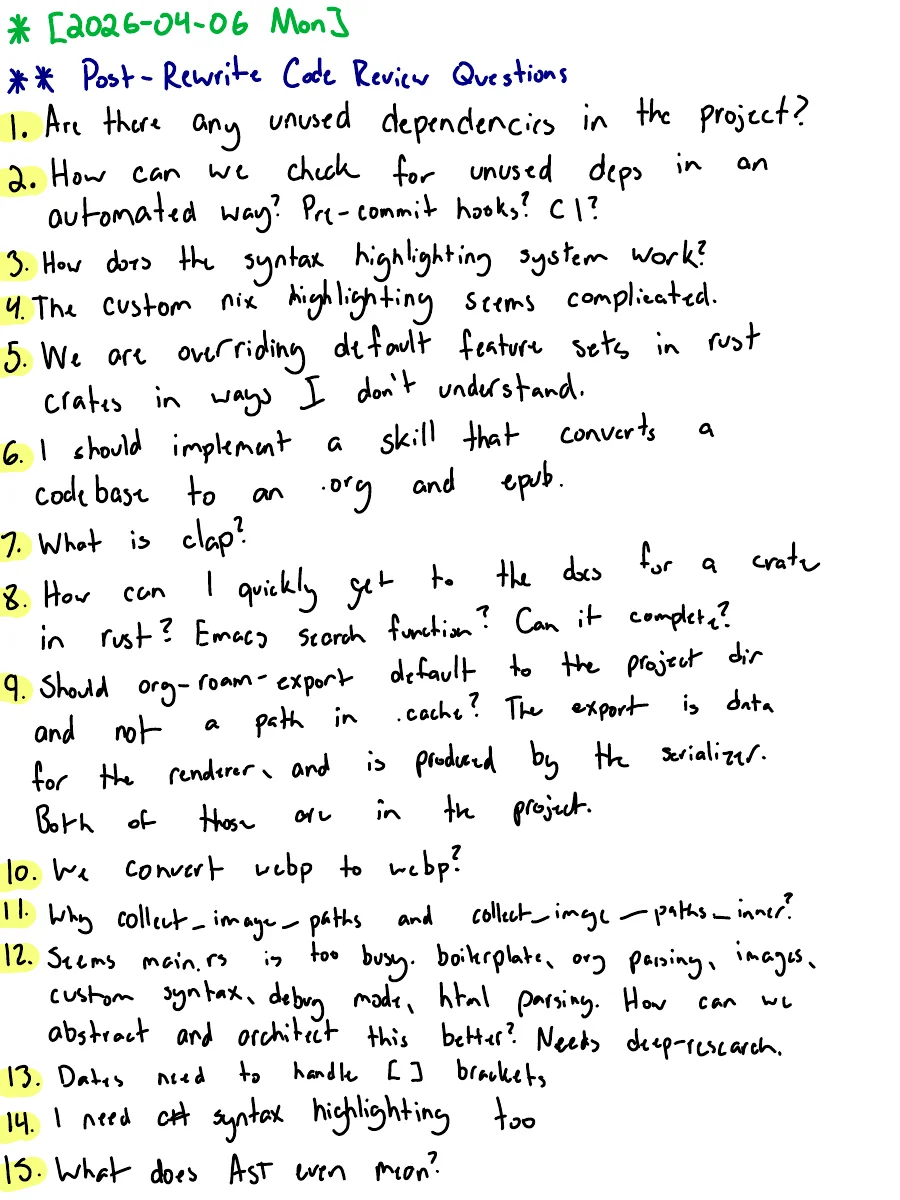 * [2026-04-06 Mon]
** Post-Rewrite Code Review Questions
1. Are there any unused dependencies in the project?
2. How can we check for unused deps in an
automated way? Pre-commit hooks? CI?
3. How does the syntax highlighting system work?
4. The custom nix highlighting seems complicated.
5. We are overriding default feature sets in rust
crates in ways I don't understand.
6. I should implement a skill that converts a
codebase to an .org and epub.
7. What is clap?
8. How can I quickly get to the docs for a crate
in rust? Emacs search function? Can it complete?
9. Should org-roam-export default to the project dir
and not a path in .cache? The export is data
for the renderer, and is produced by the serializer.
Both of those are in the project.
10. We convert webp to webp?
11. Why collect_image_paths and collect_imge_paths_inner?
12. Seems main.rs is too busy. boilerplate, org parsing, images,
custom syntax, debug mode, html parsing. How can we
abstract and architect this better? Needs deep-research.
13. Dates need to handle [] brackets
14. I need c# syntax highlighting too
15. What does AST even mean?